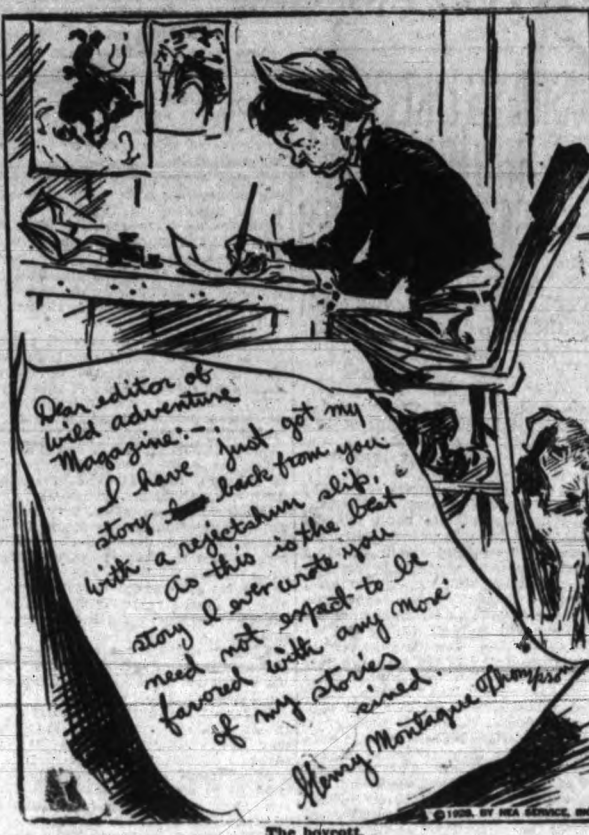 Dear editor of
Wild adventure
Magazine:-
I have just got my
story back from you
with a rejectshun slip.
As this is the best
story I ever wrote you
need not expect to be
favored with any more
of my stories
sined.
Henry Montague Thompson
BY NEA SERVICE, IN
The boycott